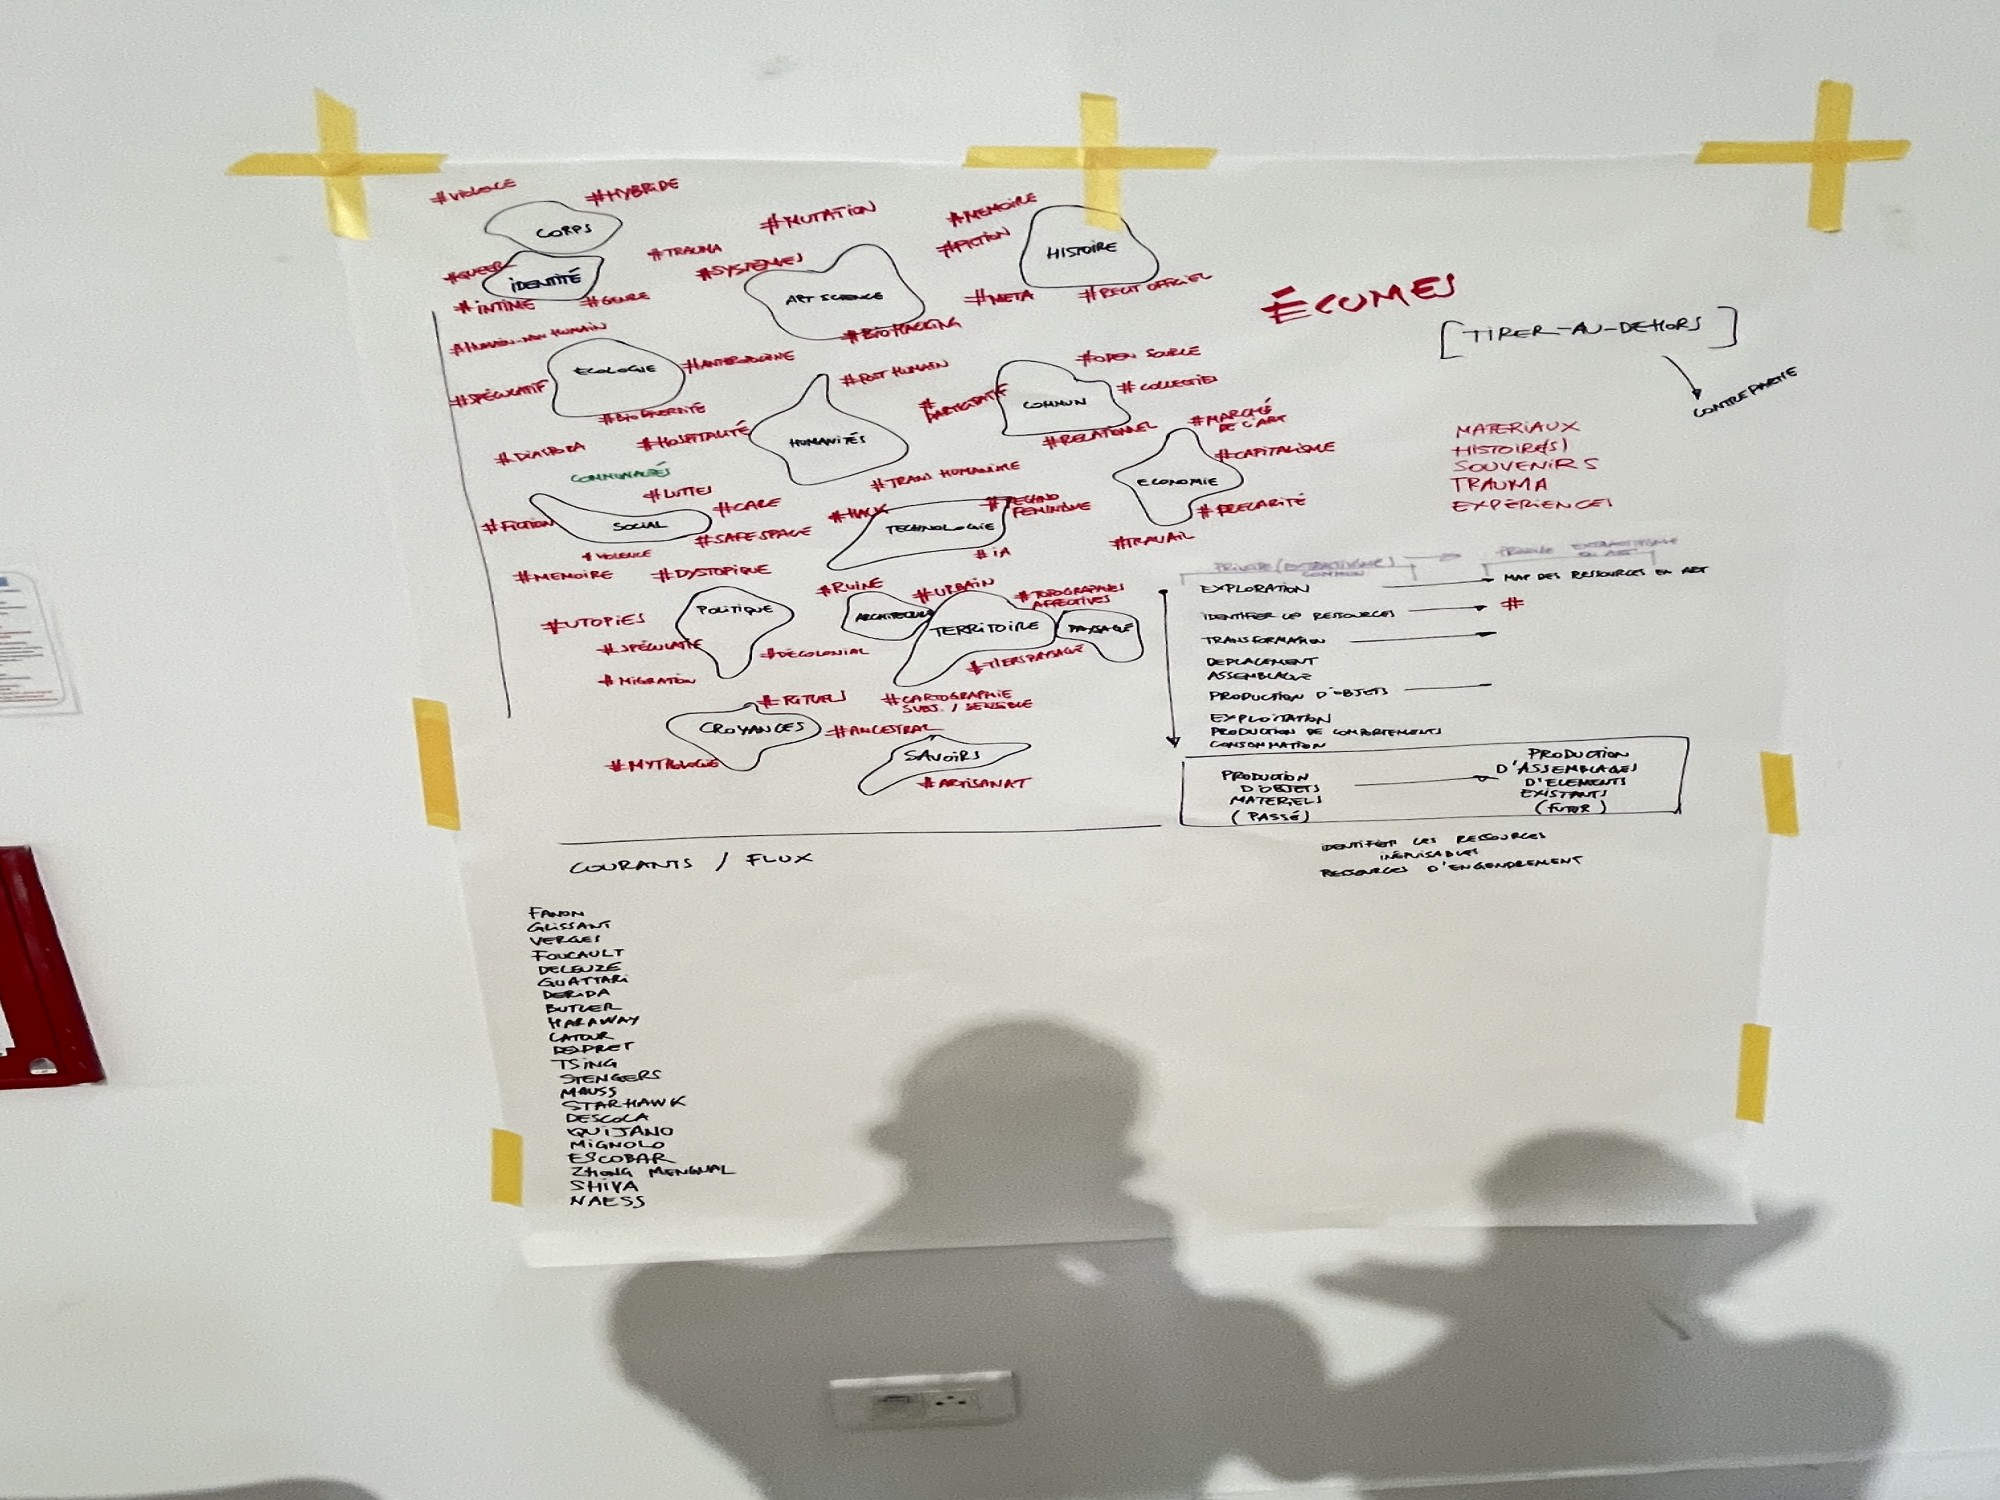 #VIOLENCE
#HYBRIDE
CORPS
#QUEER
IDENTITÉ
#INTIME
#GENRE
#TRAUMA
#MUTATION
#SYSTÈMES
ART SCIENCE
#BIOHACKING
#MEMOIRE
#FICTION
HISTOIRE
#META
#RECIT OFFICIEL
#HUMAIN-NON HUMAIN
ECOLOGIE
#ANTHROPOCENE
#SPÉCULATIF
#BIODIVERSITÉ
#POST HUMAIN
#HOSPITALITÉ
HUMANITÉS
#TRANS HUMANISME
#OPEN SOURCE
#COLLECTIF
#PARTICIPATIF
COMMUN
#RELATIONNEL
#MARCHÉ
DE L'ART
#CAPITALISME
ECONOMIE
#PRECARITÉ
#TRAVAIL
#DIASPORA
COMMUNAUTÉS
#LUTTES
#CARE
#FICTION
SOCIAL
#SAFE SPACE
#VIOLENCE
#MEMOIRE
#DYSTOPIQUE
#HACK
#TECHNO
FEMINISME
TECHNOLOGIE
#IA
#UTOPIES
POLITIQUE
#SPÉCULATIF
#DÉCOLONIAL
#MIGRATION
#RUINE
#URBAIN
#TOPOGRAPHIES
AFFECTIVES
ARCHITECTURE
TERRITOIRE
PAYSAGE
#TIERS PAYSAGE
#CARTOGRAPHIE
SUBJ. / SENSIBLE
#RITUELS
CROYANCES
#ANCESTRAL
#MYTHOLOGIE
SAVOIRS
#ARTISANAT
ÉCUMES
[TIRER-AU-DEHORS]
CONTREPARTIE
MATERIAUX
HISTOIRE(S)
SOUVENIRS
TRAUMA
EXPÉRIENCES
PRINCIPE (EXTRACTIVISME)
COMMUN
EXPLORATION
MAP DES RESSOURCES EN ART
IDENTIFIER LES RESSOURCES
#
TRANSFORMATION
DEPLACEMENT
ASSEMBLAGE
PRODUCTION D'OBJETS
EXPLOITATION
PRODUCTION DE COMPORTEMENTS
CONSOMMATION
PRODUCTION
D'OBJETS
MATERIELS
(PASSÉ)
PRODUCTION
D'ASSEMBLAGES
D'ELEMENTS
EXISTANTS
(FUTUR)
IDENTIFIER LES RESSOURCES
INÉPUISABLES
RESSOURCES D'ENGENDREMENT
COURANTS / FLUX
FANON
GLISSANT
VERGES
FOUCAULT
DELEUZE
GUATTARI
DERIDA
BUTLER
HARAWAY
LATOUR
DESPRET
TSING
STENGERS
MAUSS
STARHAWK
DESCOLA
QUIJANO
MIGNOLO
ESCOBAR
ZHONG MENGUAL
SHIVA
NAESS